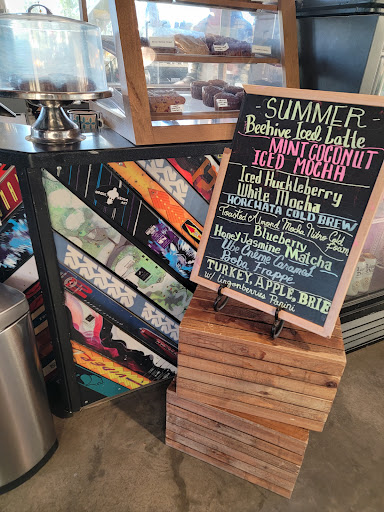 SUMMER
Beehive Iced Latte
MINT COCONUT
ICED MOCHA
Iced Huckleberry
White Mocha
HORCHATA COLD BREW
Toasted Almond Mocha Nitro Cold
Foam
Blueberry
Honey Jasmine Matcha
Ube Creme Caramel
Boba Frappe
TURKEY, APPLE, BRIE
w/ lingonberries Panini